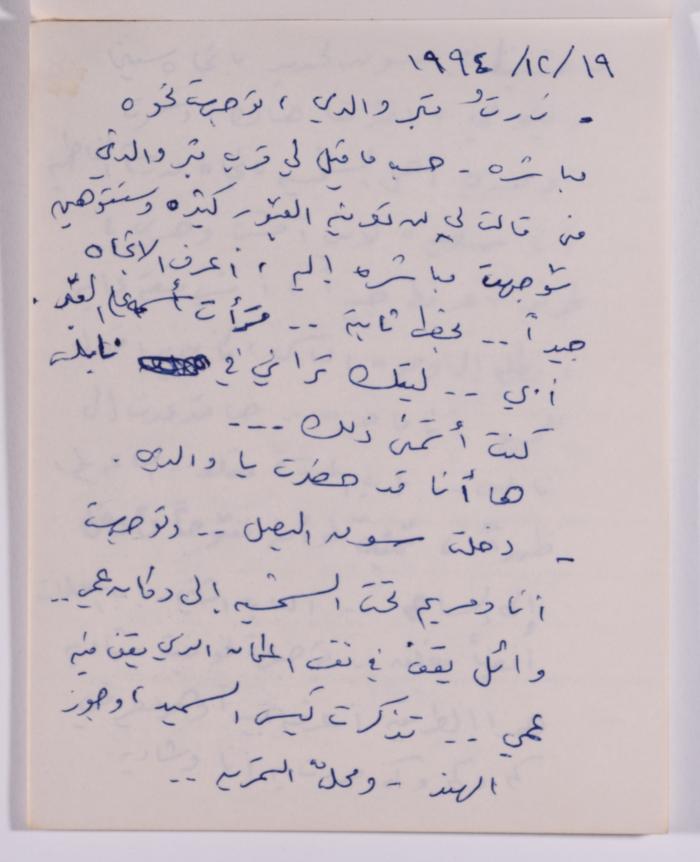 ١٩٩٤/١٢/١٩
- زرتُ قبر والدي ، توجهت نحوه
مباشره - حسب ما قيل لي قرب قبر والدتي
منى قالت لي لن تعرفيه القبور كثيره وستتوهين
توجهت مباشره إليه ، أعرف الاتجاه
جيداً .. بخطى ثابتة .. قرأت أسمه على القبر .
أبي .. ليتك تراني في نابلس
كنت أتمنى ذلك ...
ها أنا قد حضرت يا والدي .
- دخلت سوق البصل .. وتوجهت
أنا ومريم تحت الشمسيه إلى دكان عمي ..
وائل يقف في نفس المكان الذي يقف فيه
عمي .. تذكرت كيس السميد ، وجوز
الهند - ومحلّ التمريه ..